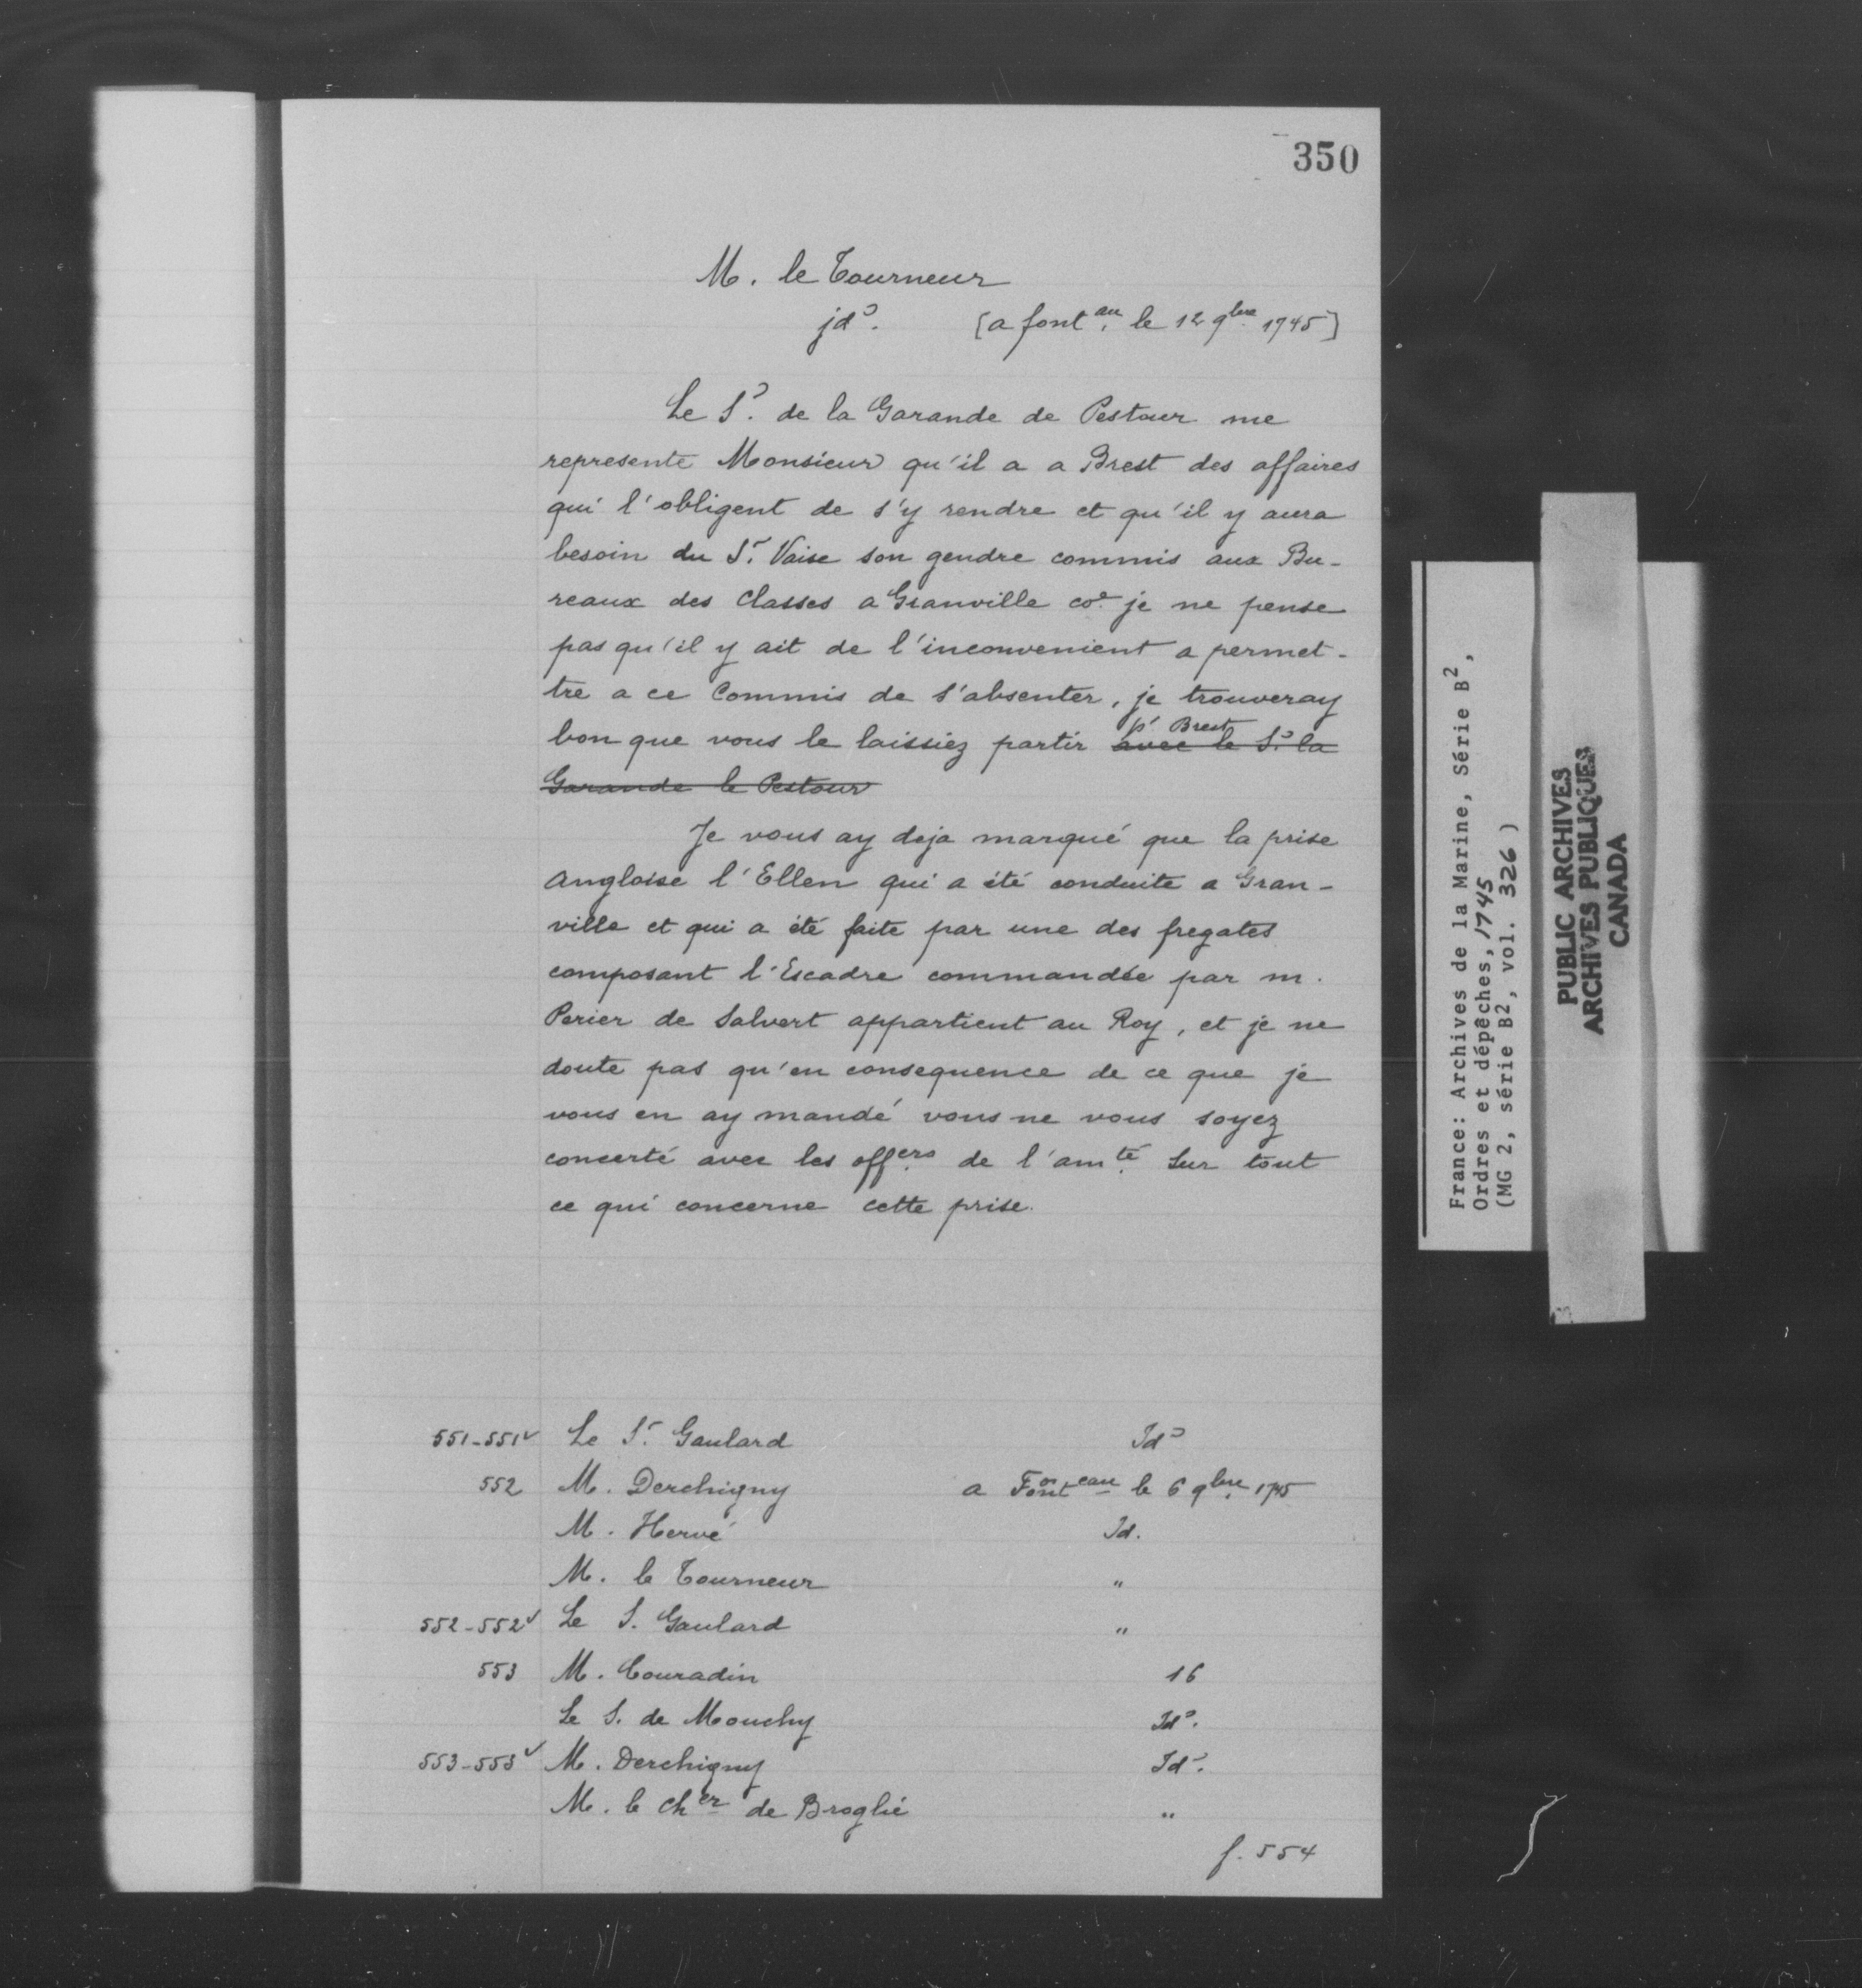 350
M. le Tourneur
jdᵒ. [a fontᵃᵘ. le 12 9ᵇʳᵉ 1745]
Le Sʳ. de la Garande de Pestour me
represente Monsieur qu'il a a Brest des affaires
qui l'obligent de s'y rendre et qu'il y aura
besoin du Sʳ. Vaise son gendre commis aux Bu-
reaux des Classes a Granville coᵉ je ne pense
pas qu'il y ait de l'inconvenient a permet-
tre a ce Commis de s'absenter, je trouveray
pʳ Brest
bon que vous le laissiez partir avec le Sʳ. la
Garande le Pestour
Je vous ay deja marqué que la prise
angloise l'Ellen qui a été conduite a Gran-
ville et qui a été faite par une des fregates
composant l'Escadre commandée par m.
Perier de Salvert appartient au Roy, et je ne
doute pas qu'en consequence de ce que je
vous en ay mandé vous ne vous soyez
concerté avec les offᵉʳˢ. de l'amᵗᵉ. sur tout
ce qui concerne cette prise.
551-551ᵛ Le Sʳ. Gaulard Idᵒ
552 M. Derchigny a Fontᵉᵃᵘ le 6 9ᵇʳᵉ 1745
M. Hervé Id.
M. le Tourneur "
552-552ᵛ Le S. Gaulard "
553 M. Couradin 16
Le S. de Mouchy Idᵒ.
553-553ᵛ M. Derchigny Idᵒ.
M. le chᵉʳ de Broglie "
f. 554
France: Archives de la Marine, Série B²,
Ordres et dépêches, 1745
(MG 2, série B2, vol. 326 )
PUBLIC ARCHIVES
ARCHIVES PUBLIQUES
CANADA